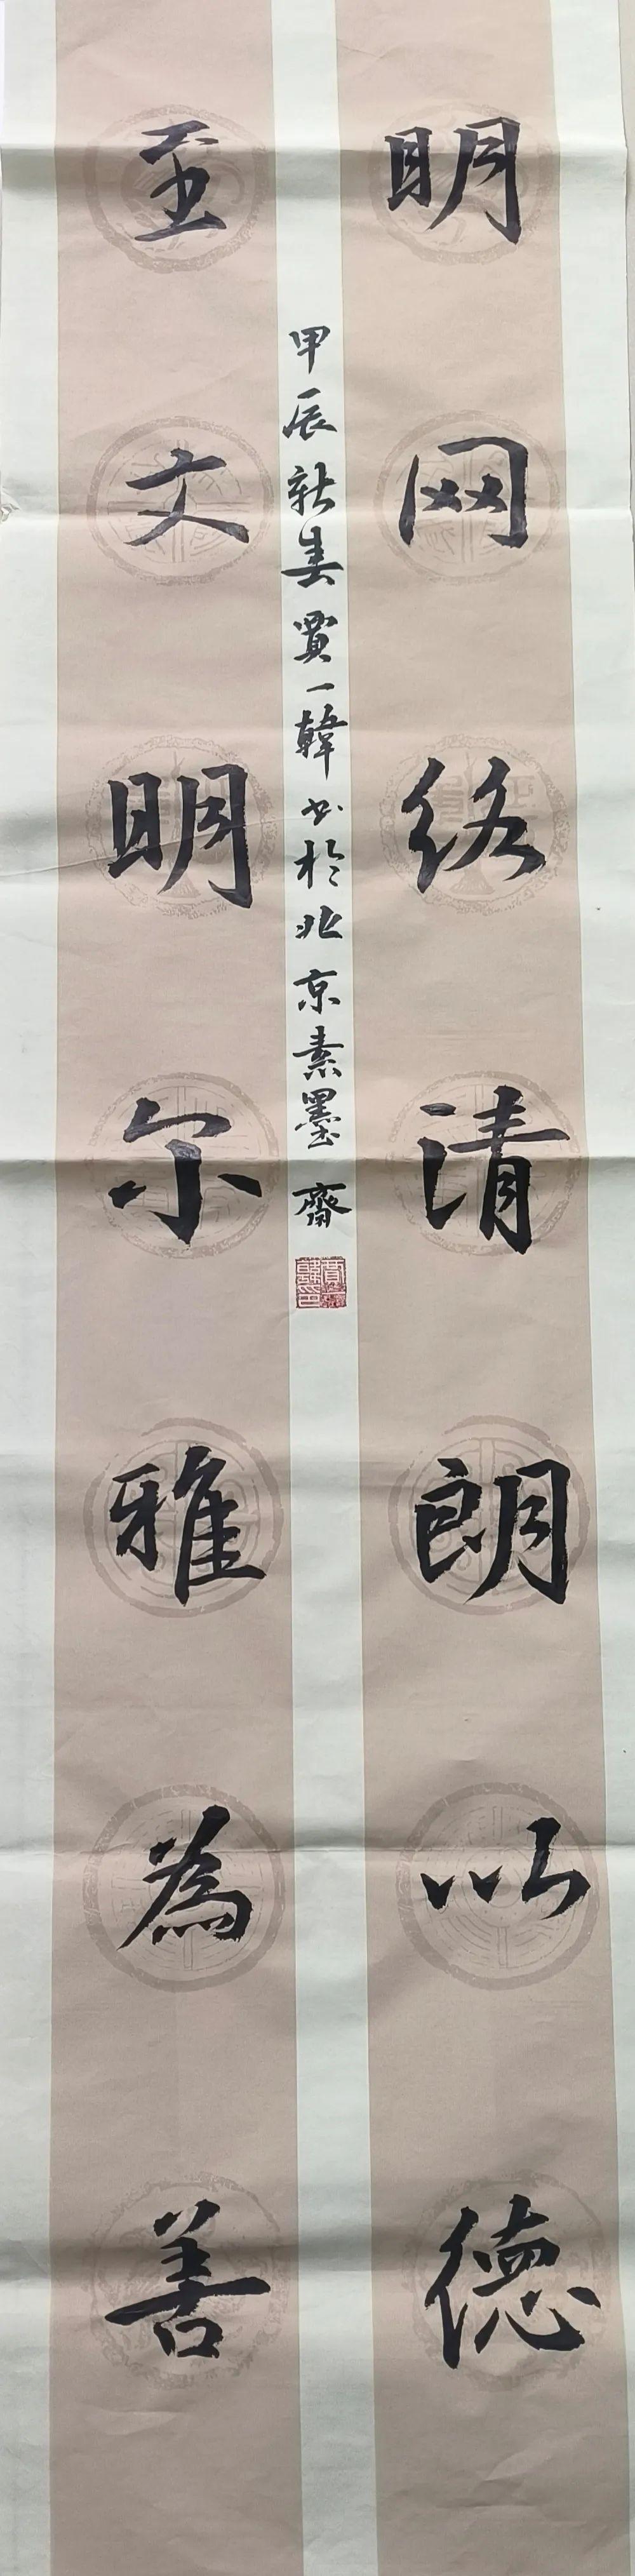 明网络清朗以德
至文明尔雅為善
甲辰新春賈一韓书於北京素墨齋